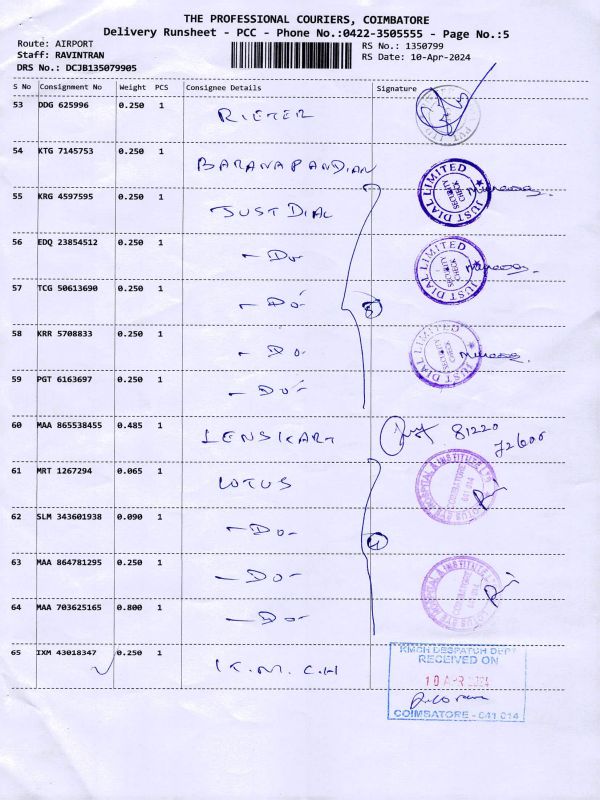 THE PROFESSIONAL COURIERS, COIMBATORE
Delivery Runsheet - PCC - Phone No.:0422-3505555 - Page No.:5
Route: AIRPORT
Staff: RAVINTRAN
DRS No.: DCJB135079905
RS No.: 1350799
RS Date: 10-Apr-2024
S No Consignment No Weight PCS Consignee Details Signature
53 DDG 625996 0.250 1 RIETER
54 KTG 7145753 0.250 1 BARANAPANDIAN
55 KRG 4597595 0.250 1 JUST DIAL
JUST DIAL LIMITED SECURITY CHECK
56 EDQ 23854512 0.250 1 - Do -
JUST DIAL LIMITED SECURITY CHECK
57 TCG 50613690 0.250 1 - Do -
5
58 KRR 5708833 0.250 1 - Do -
JUST DIAL LIMITED SECURITY CHECK
59 PGT 6163697 0.250 1 - Do -
60 MAA 865538455 0.485 1 LENSKART
81220
72600
61 MRT 1267294 0.065 1 LOTUS
LOTUS EYE HOSPITAL & INSTITUTE LTD COIMBATORE 641 014
62 SLM 343601938 0.090 1 - Do -
4
63 MAA 864781295 0.250 1 - Do -
LOTUS EYE HOSPITAL & INSTITUTE LTD COIMBATORE 641 014
64 MAA 703625165 0.800 1 - Do -
65 IXM 43018347 0.250 1 K.M.C.H
KMCH DESPATCH DEPT
RECEIVED ON
10 APR 2024
COIMBATORE - 641 014